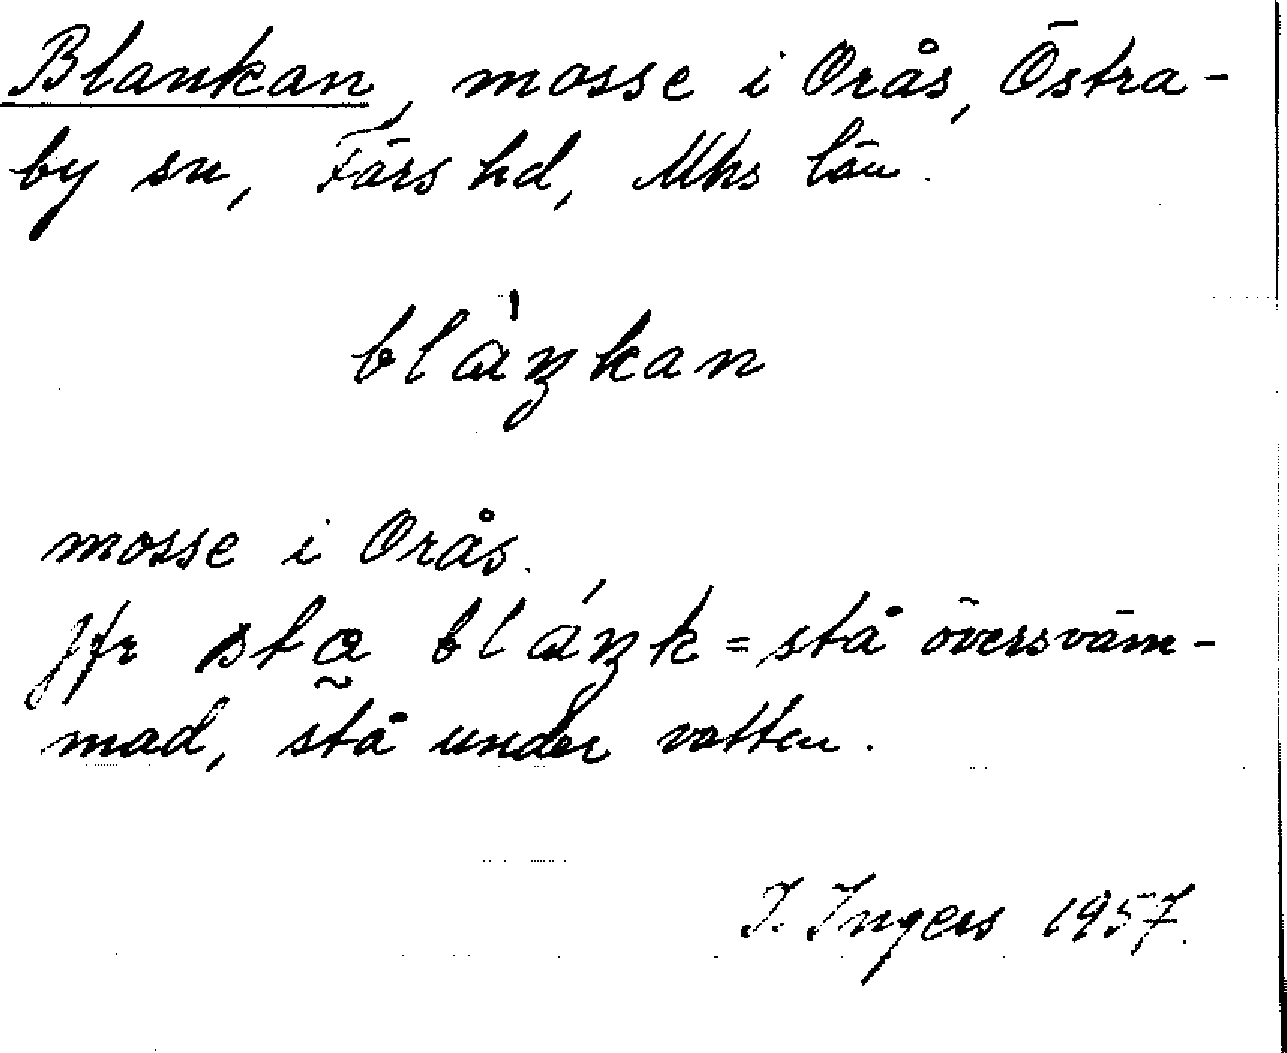 Blankan, mosse i Orås, Östra-
by sn, Färs hd, Mhs län.
blàŋkan
mosse i Orås.
Jfr stɑ̰ bláŋk = stå översväm-
mad, stå under vatten.
I. Ingers 1957.